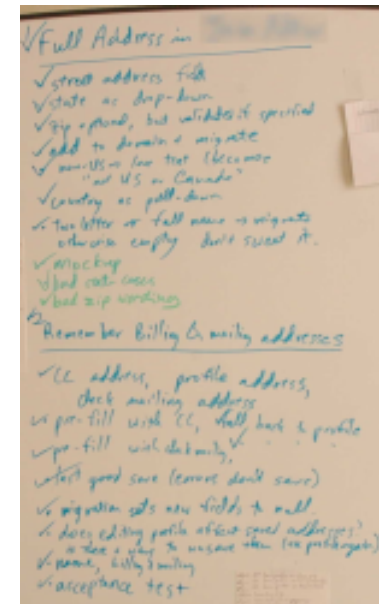 ✓ Full Address in
✓ street address field
✓ state as drop-down
✓ zip optional, but validates if specified
✓ add to domain & migrate
✓ non-US → low text (becomes
"not US or Canada"
✓ country as pull-down
✓ two letter or full name → migrate
otherwise empty don't sweat it.
✓ mockup
✓ find edit cases
✓ bad zip wording
Remember Billing & mailing addresses
✓ CC address, profile address,
deck mailing address
✓ pre-fill with CC, fall back to profile
✓ pre-fill with
✓ test good save (errors don't save)
✓ migration sets new fields to null.
✓ does editing profile affect saved addresses?
is there a way to unsave them
✓ name, billing & mailing
✓ acceptance test